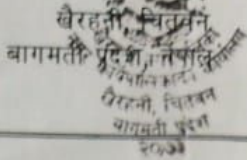 खैरहनी, चितवन
बागमती प्रदेश, नेपाल
खैरहनी, चितवन
बागमती प्रदेश
२०७३